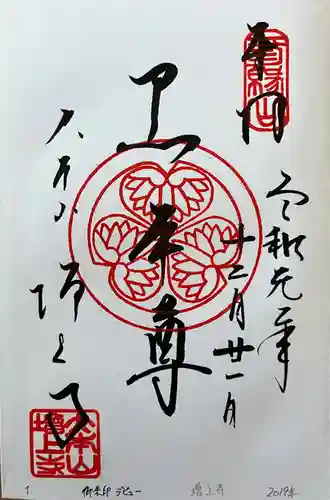 奉拝
令和元年
十二月廿一日
黒本尊
大本山
増上寺
大本山
増上寺
1.
御朱印デビュー
増上寺
2019年